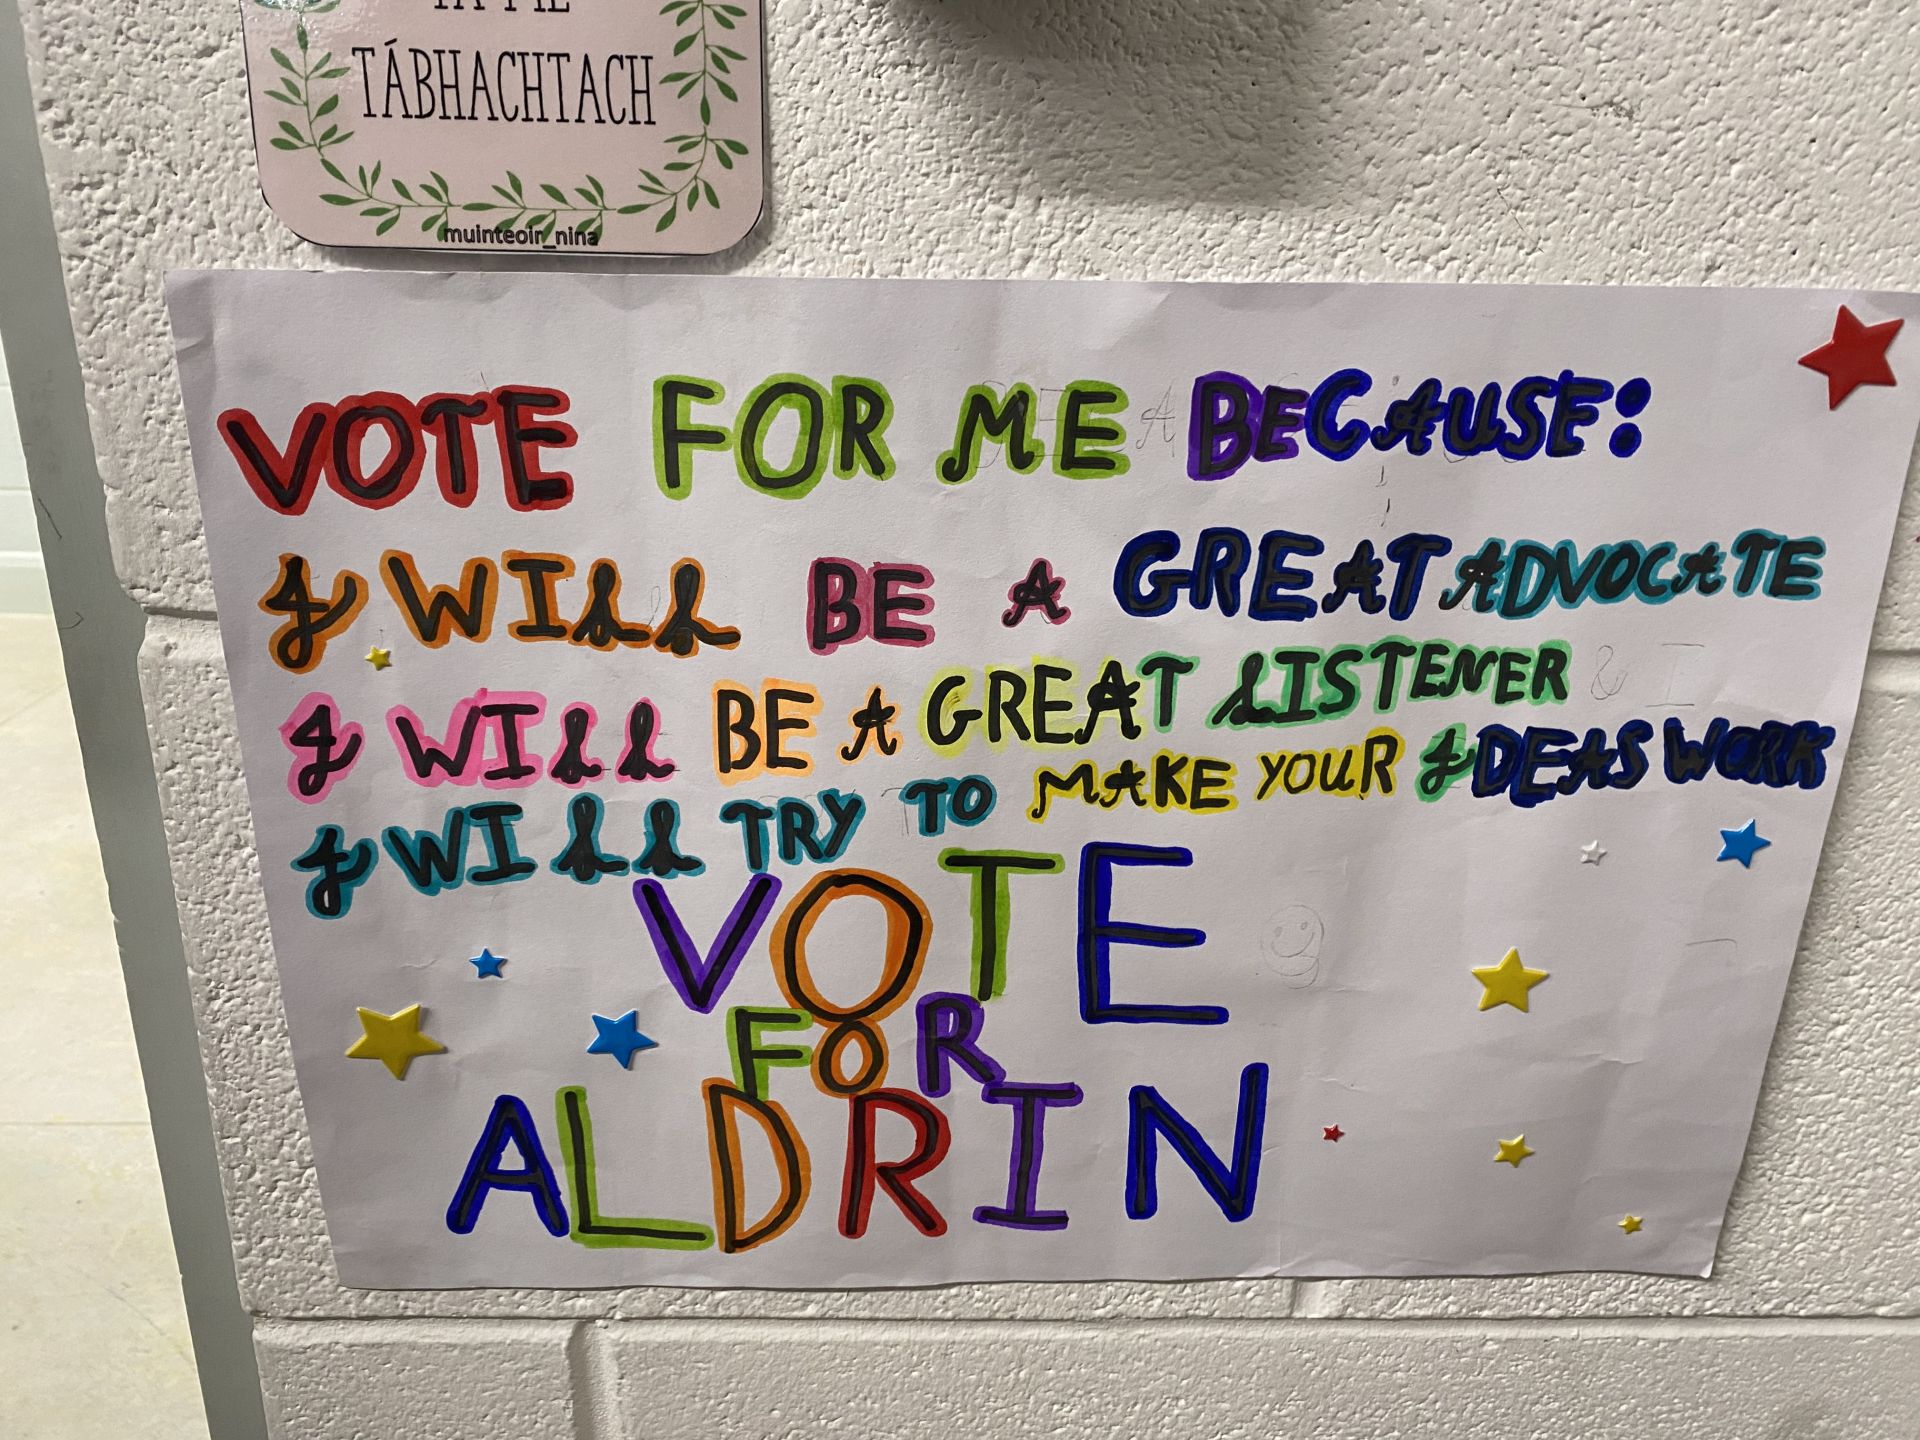 TÁ MÉ
TÁBHACHTACH
muinteoir_nina
VOTE FOR ME BECAUSE:
I WILL BE A GREAT ADVOCATE
I WILL BE A GREAT LISTENER & I
I WILL TRY TO MAKE YOUR IDEAS WORK
VOTE
FOR
ALDRIN